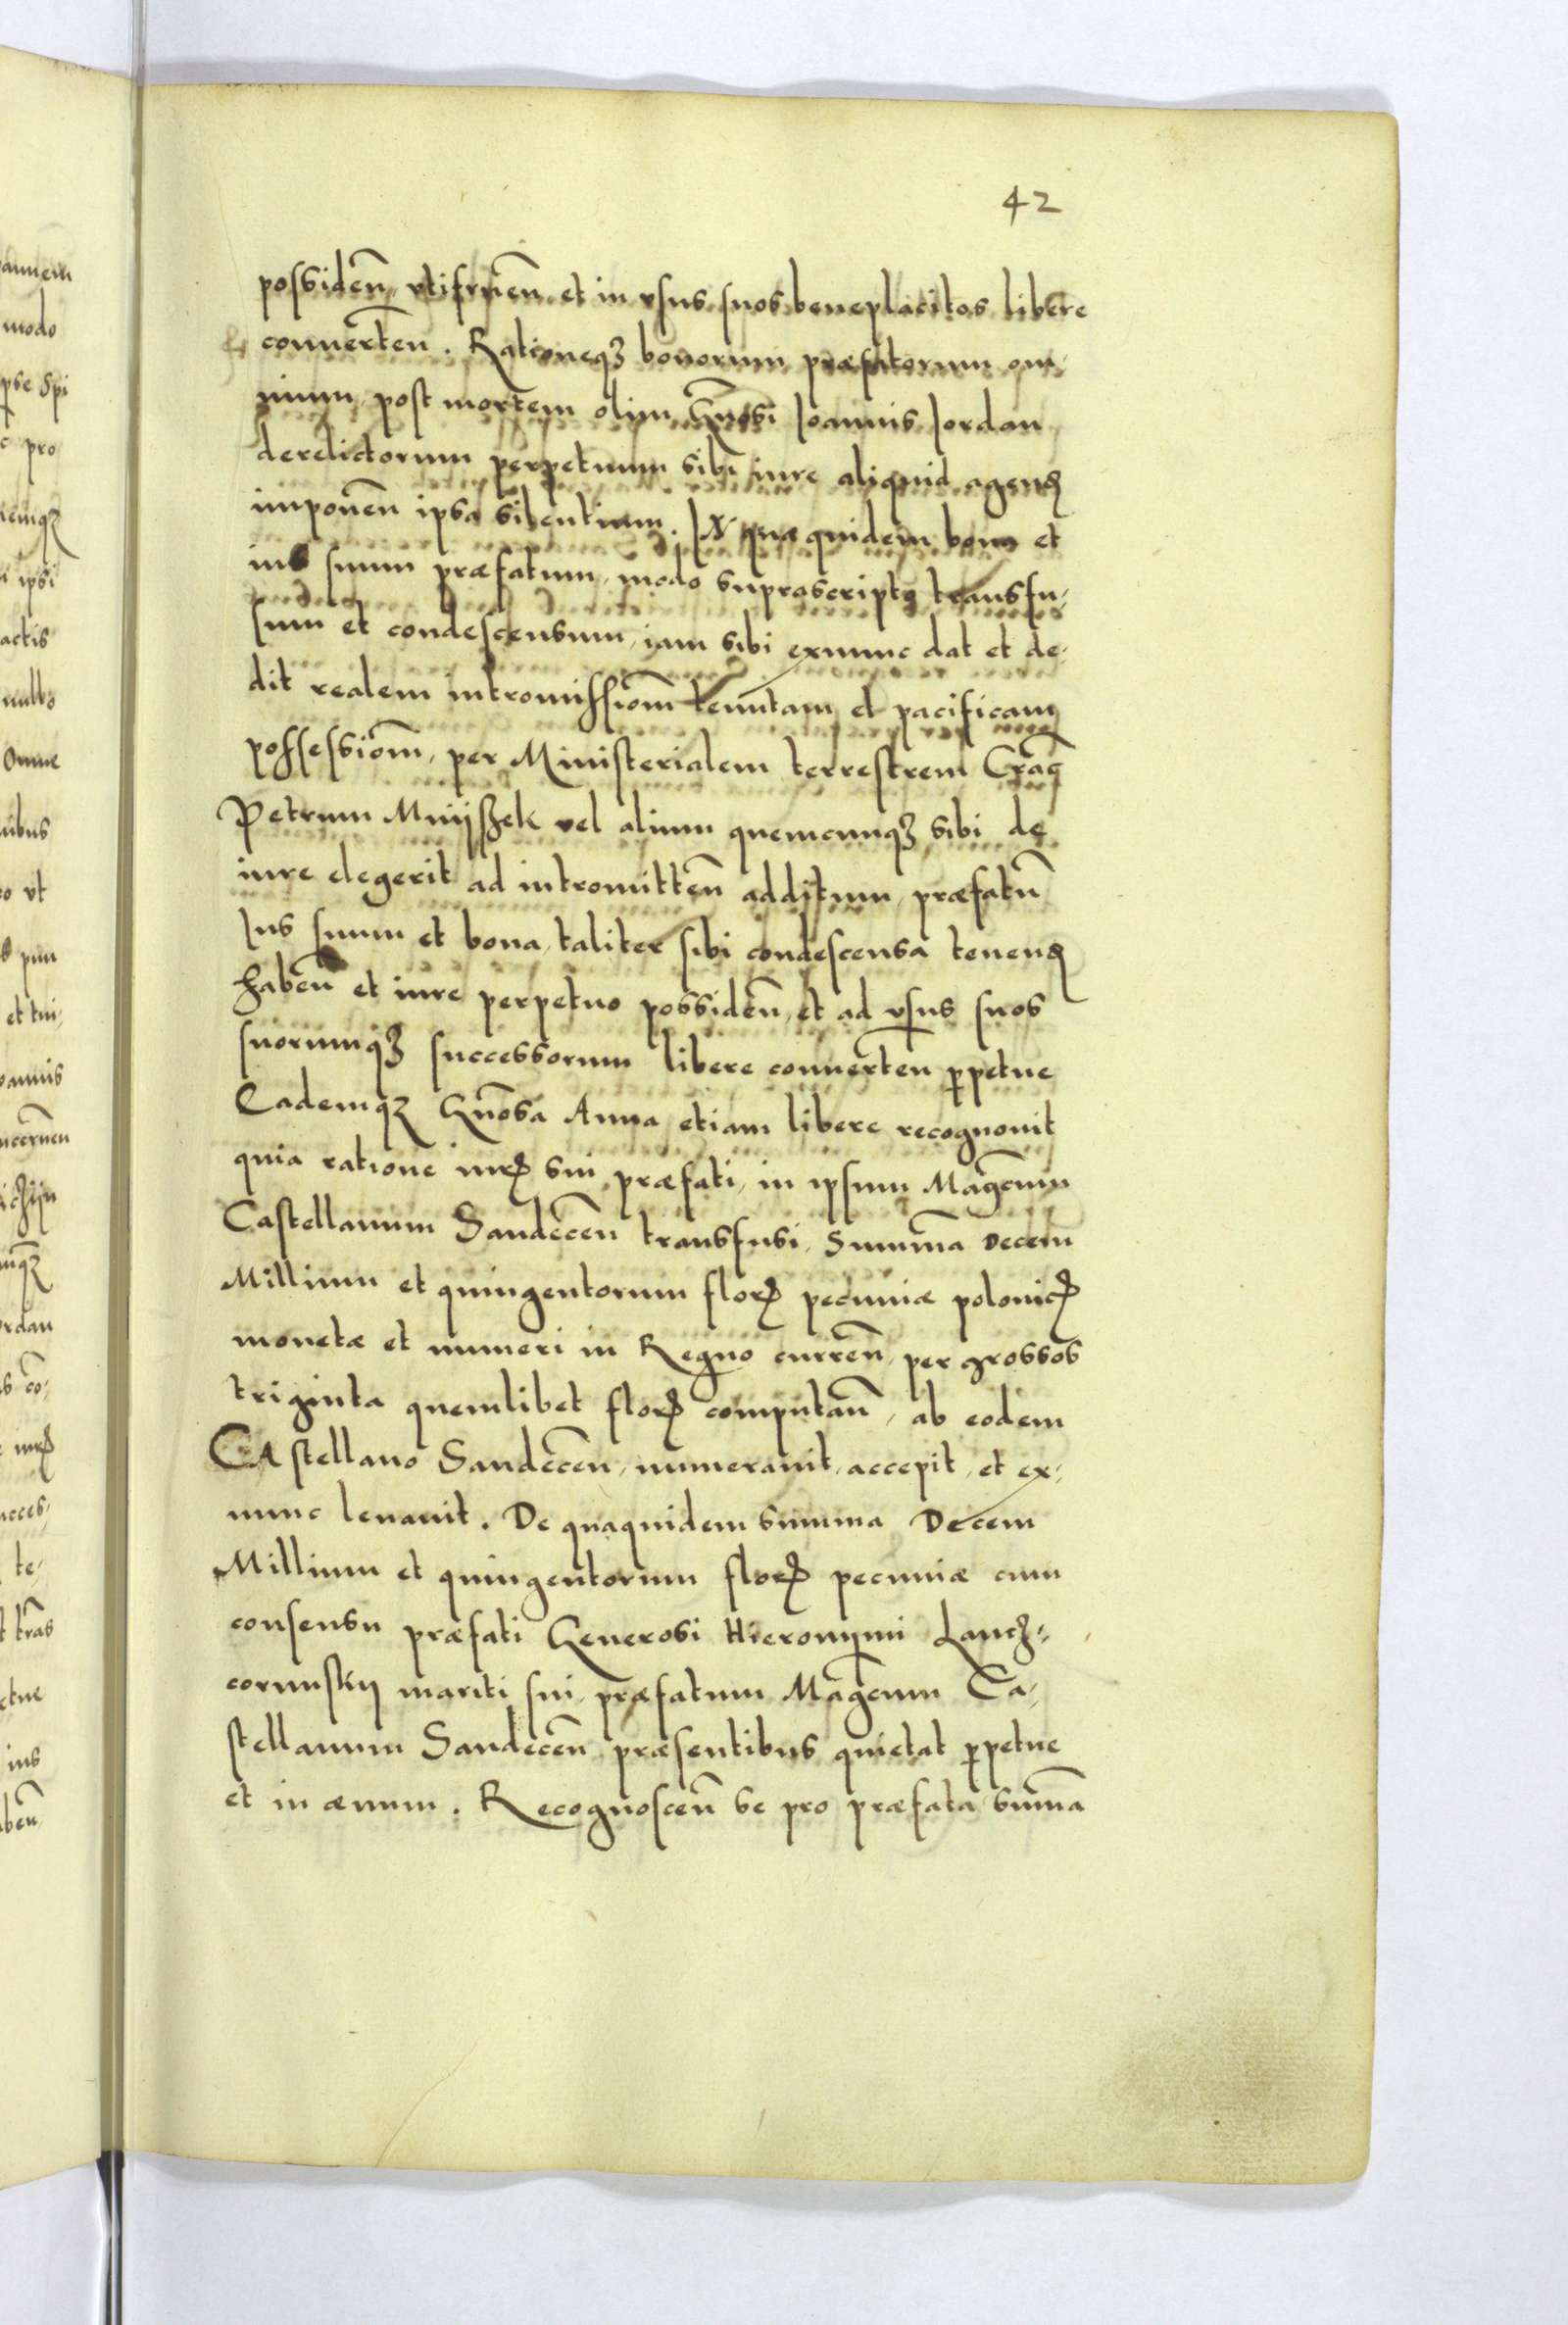 42
possideñ, vtifrueñ et in vsus suos beneplacitos libere
conuerteñ. Rationeqʒ bonorum præfatorum om-
nium, post mortem olim Gñosi Ioannis Iordan
derelictorum perpetuum sibi iure aliquid agenđ
imponeñ ipsa silentium. IN quæ quidem bona et
ius suum præfatum, modo suprascripto transfu-
sum et condescensum, iam sibi exnunc dat et de-
dit realem intromissiom̃ tenutam et pacificam
possessiom̃, per Ministerialem terrestrem Crac̃
Petrum Mnijszek vel alium quemcunqʒ sibi de
iure elegerit ad intromitteñ additum, præfatũ
Ius suum et bona, taliter sibi condescensa tenenđ
habeñ et iure perpetuo possideñ, et ad vsus suos
suorumqʒ successorum libere conuerteñ ꝑpetue
Eademqʒ Gñosa Anna, etiam libere recognouit
quia ratione iurꝭ sui præfati, in ipsum Magc̃um
Castellanum Sandeceñ transfusi, Sum̃a Decem
Millium et quingentorum florꝭ pecuniæ polonicꝭ
monetæ et numeri in Regno curreñ, per grossos
triginta quemlibet florꝭ computañ, ab eodem
CAstellano Sandeceñ, numerauit, accepit, et ex-
nunc leuauit. De quaquidem summa Decem
Millium et quingentorum florꝭ pecuniæ cum
consensu præfati Generosi Hieronymi Lancz-
corunskij mariti sui, præfatum Magc̃um Ca-
stellanum Sandeceñ præsentibus quietat ꝑpetue
et in æuum. Recognosceñ se pro præfata sum̃a